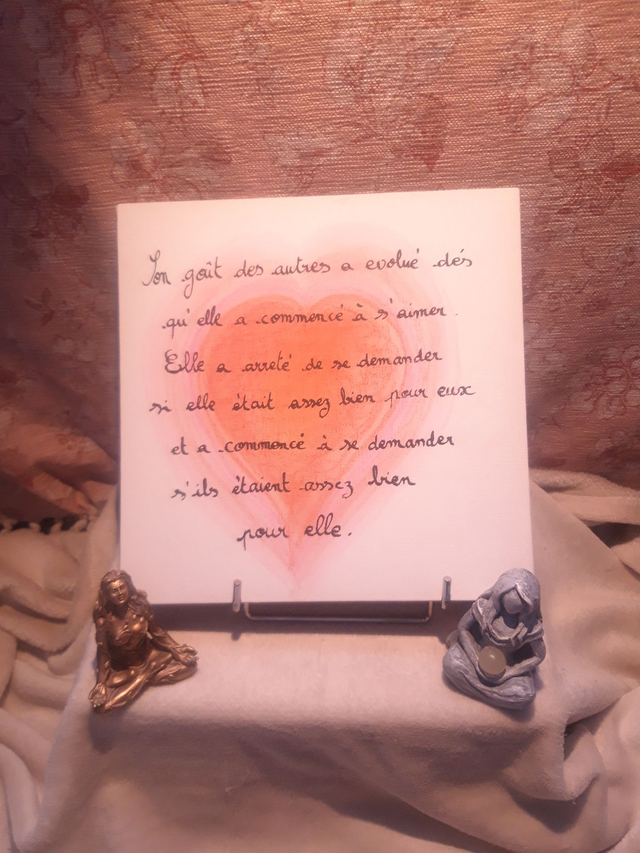 Son goût des autres a evolué dés
qu'elle a commencé à s'aimer.
Elle a arreté de se demander
si elle était assez bien pour eux
et a commencé à se demander
s'ils étaient assez bien
pour elle.